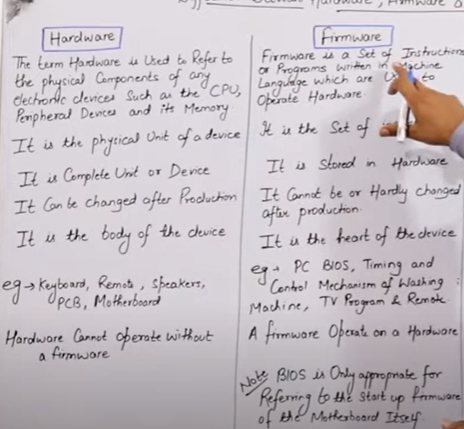 Hardware, Firmware
Hardware
The term Hardware is Used to Refer to
the physical Components of any
electronic devices Such as the CPU,
Peripheral Devices and its Memory.
It is the physical Unit of a device
It is Complete Unit or Device
It Can be changed after Production
It is the body of the device
eg → Keyboard, Remote, Speakers,
PCB, Motherboard
Hardware Cannot operate without
a firmware
Firmware
Firmware is a Set of Instructions
or Programs written in Machine
Language which are to
Operate Hardware.
It is the Set of
It is Stored in Hardware
It Cannot be or Hardly changed
after production.
It is the heart of the device
eg → PC BIOS, Timing and
Control Mechanism of Washing
Machine, TV Program & Remote
A firmware Operate on a Hardware
Note BIOS is Only appropriate for
Referring to the Start up firmware
of the Motherboard Itself.